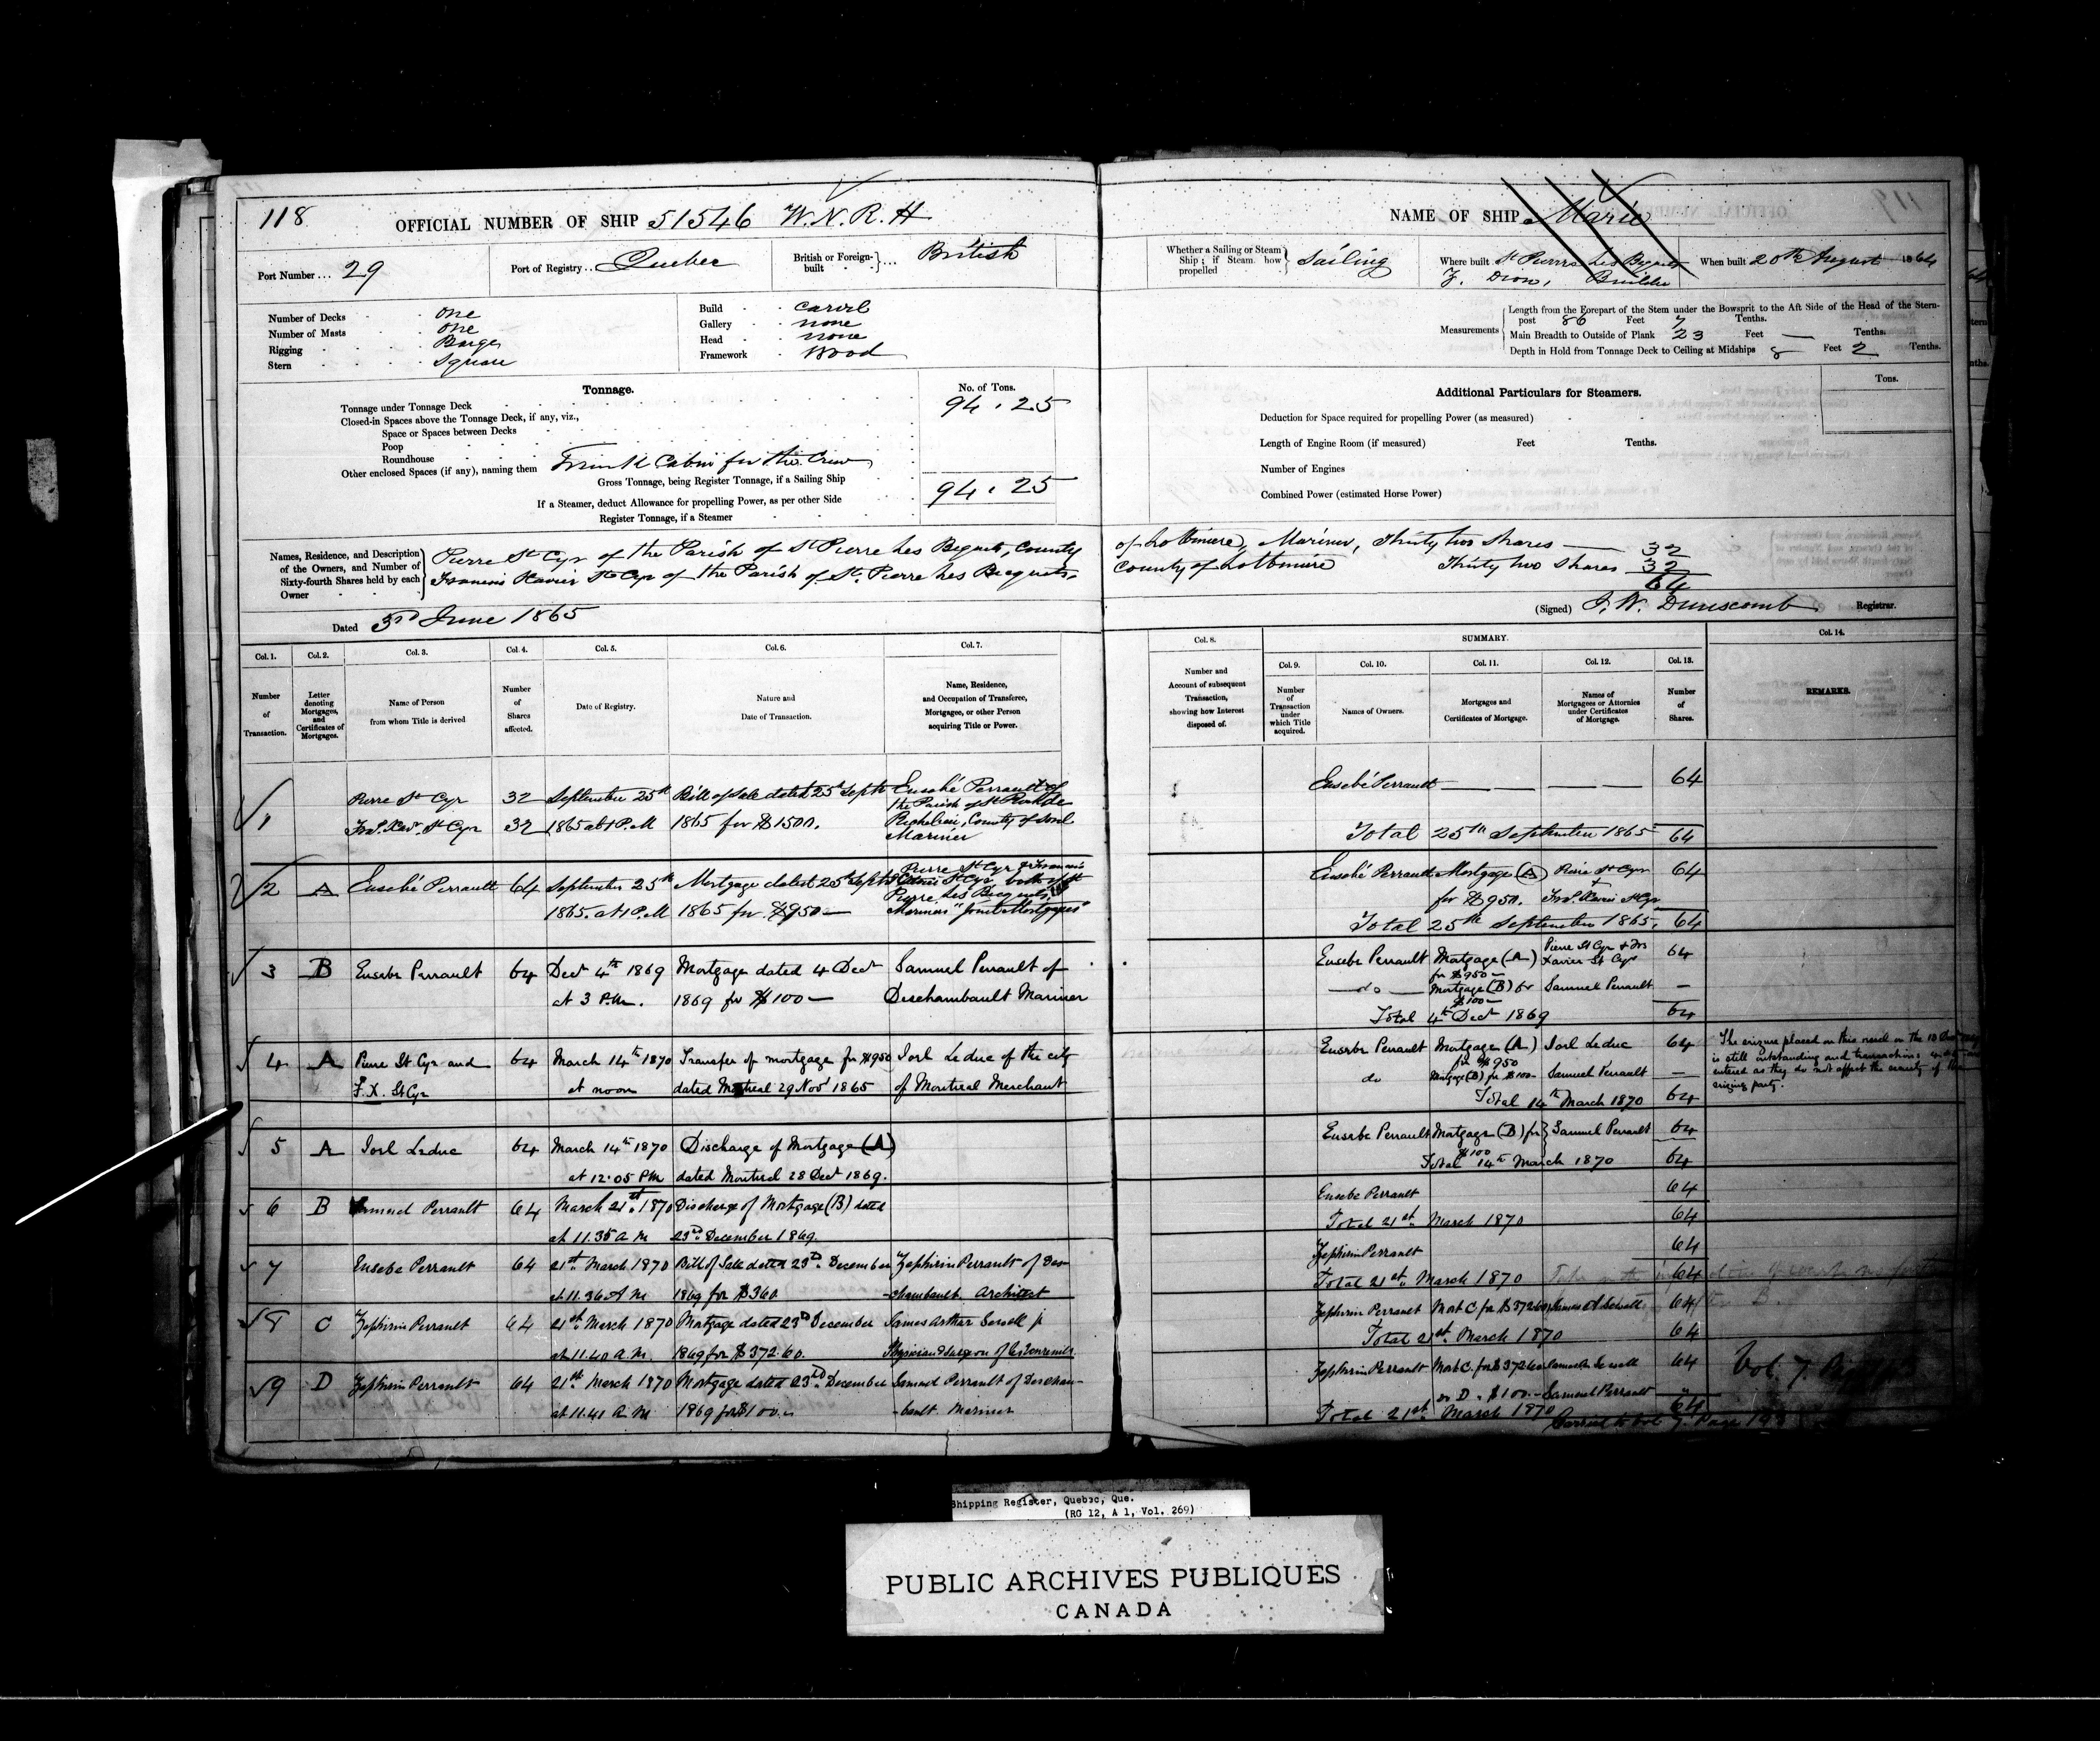 118
OFFICIAL NUMBER OF SHIP 51546 W.N.R.H
Port Number... 29
Port of Registry.. Quebec
British or Foreign-built } ... British
Number of Decks one
Number of Masts one
Rigging Barge
Stern Square
Build Carvel
Gallery none
Head none
Framework Wood
Tonnage.
No. of Tons.
Tonnage under Tonnage Deck 94.25
Closed-in Spaces above the Tonnage Deck, if any, viz.,
Space or Spaces between Decks
Poop
Roundhouse
Other enclosed Spaces (if any), naming them Cabin for the Crew
Gross Tonnage, being Register Tonnage, if a Sailing Ship 94.25
If a Steamer, deduct Allowance for propelling Power, as per other Side
Register Tonnage, if a Steamer
Names, Residence, and Description of the Owners, and Number of Sixty-fourth Shares held by each Owner
Pierre St Cyr of the Parish of St Pierre Les Bequets, County
Francois Xavier St Cyr of the Parish of St. Pierre Les Becquets,
Dated 3rd June 1865
Col. 1. Number of Transaction.
Col. 2. Letter denoting Mortgages, and Certificates of Mortgages.
Col. 3. Name of Person from whom Title is derived
Col. 4. Number of Shares affected.
Col. 5. Date of Registry.
Col. 6. Nature and Date of Transaction.
Col. 7. Name, Residence, and Occupation of Transferee, Mortgagee, or other Person acquiring Title or Power.
1 Pierre St Cyr 32 September 25th Bill of Sale dated 25th Septr Eusebé Perrault of
the Parish of St Roch de
Frs. Xav. St Cyr 32 1865 at 1 P.M 1865 for $1500. Richelieu, County of Sorel
Mariner
2 A Eusebé Perrault 64 September 25th Mortgage dated 25th Septr Pierre St Cyr & Francois
Xavier St Cyr both of St
Pierre Les Becquets,
1865. at 1 P.M 1865 for $950 — Mariners "Joint Mortgagees"
3 B Eusebe Perrault 64 Decr 4th 1869 Mortgage dated 4 Decr Samuel Perrault of
at 3 P.M. 1869 for $100 — Deschambault Mariner
4 A Pierre St Cyr and 64 March 14th 1870 Transfer of mortgage for $950 Joel Leduc of the city
F. X. St Cyr at noon dated Montreal 29 Novr 1865 of Montreal Merchant
5 A Joel Leduc 64 March 14th 1870 Discharge of Mortgage (A)
at 12.05 P.M dated Montreal 28 Decr 1869.
6 B Samuel Perrault 64 March 21st. 1870 Discharge of Mortgage (B) dated
at 11.35 A M 23rd December 1869.
7 Eusebe Perrault 64 21st. March 1870 Bill of Sale dated 23rd December Zephirin Perrault of Des-
at 11.36 A M 1869 for $360. -chambault Architect
8 C Zephirin Perrault 64 21st. March 1870 Mortgage dated 23rd December James Arthur Sewell jr
at 11.40 A.M. 1869 for $372.60. Physician & Surgeon of
9 D Zephirin Perrault 64 21st. March 1870 Mortgage dated 23rd December Samuel Perrault of Descham-
at 11.41 A M 1869 for $100. -bault Mariner
NAME OF SHIP Marie
Whether a Sailing or Steam Ship; if Steam how propelled } Sailing
Where built St Pierre Les Bequets
Z. Dion, Builder
When built 20th August 1864
Measurements
Length from the Forepart of the Stem under the Bowsprit to the Aft Side of the Head of the Stern-
post 86 Feet 7 Tenths.
Main Breadth to Outside of Plank 23 Feet — Tenths.
Depth in Hold from Tonnage Deck to Ceiling at Midships 8 Feet 2 Tenths.
Additional Particulars for Steamers.
Tons.
Deduction for Space required for propelling Power (as measured)
Length of Engine Room (if measured) Feet Tenths.
Number of Engines
Combined Power (estimated Horse Power)
of Lotbiniere, Mariner, Thirty two Shares — 32
County of Lotbiniere Thirty two Shares 32
64
(Signed) J. W. Dunscomb Registrar.
Col. 8. Number and Account of subsequent Transaction, showing how Interest disposed of.
SUMMARY.
Col. 9. Number of Transaction under which Title acquired.
Col. 10. Names of Owners.
Col. 11. Mortgages and Certificates of Mortgage.
Col. 12. Names of Mortgagees or Attornies under Certificates of Mortgage.
Col. 13. Number of Shares.
Col. 14. REMARKS.
Eusebé Perrault — — — — 64
Total 25th September 1865 64
Eusebé Perrault Mortgage (A) Pierre St Cyr 64
for $950. + Frs. Xavier St Cyr
Total 25th September 1865, 64
Eusebe Perrault Mortgage (A) Pierre St Cyr & Frs 64
for $950 — Xavier St Cyr
— do — Mortgage (B) for Samuel Perrault —
$100 —
Total 4th Decr 1869 64
Eusebe Perrault Mortgage (A) Joel Leduc 64
for $950
do Mortgage (B) for $100 — Samuel Perrault —
Total 14th March 1870 64
The seizure placed on this vessel on the 13 Decr
is still outstanding and transactions
entered as they do not affect the security of the
seizing party.
Eusebe Perrault Mortgage (B) for } Samuel Perrault 64
$100
Total 14th March 1870 64
Eusebe Perrault 64
Total 21st. March 1870 64
Zephirin Perrault 64
Total 21st. March 1870 64
Zephirin Perrault Mort C for $372.60 James A Sewell 64
Total 21st. March 1870 64
Zephirin Perrault Mort C. for $372.60 James A Sewell 64
do D. $100. — Samuel Perrault — "
Total 21st. March 1870 64
Vol. 7.
Carried to Vol 7. Page 193
Shipping Register, Quebec, Que.
(RG 12, A 1, Vol. 269)
PUBLIC ARCHIVES PUBLIQUES
CANADA